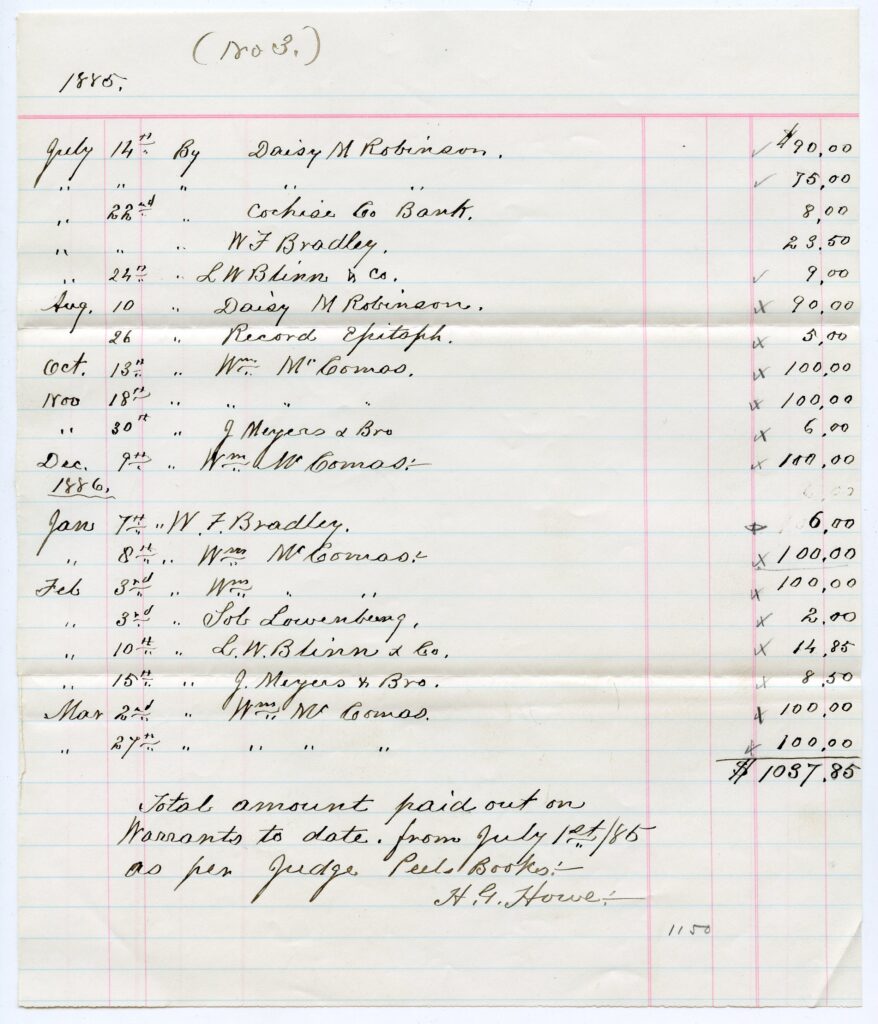 (No 3.)
1885.
July 14th By Daisy M Robinson. ✓ $90.00
" " " " " ✓ 75.00
" 22nd " Cochise Co Bank. 8.00
" " " W F Bradley. 23.50
" 24th " L W Blinn & Co. ✓ 9.00
Aug. 10 " Daisy M Robinson. x 90.00
26 " Record Epitaph. x 5.00
Oct. 13th " Wm McComas. x 100.00
Nov 18th " " " " x 100.00
" 30th " J Meyers & Bro x 6.00
Dec. 9th " Wm McComas:- x 100.00
1886. 6.00
Jan 7th " W. F. Bradley. x 6.00
" 8th " Wm McComas:- x 100.00
Feb 3rd " Wm " " x 100.00
" 3rd " Sol Lowenburg, x 2.00
" 10th " L. W. Blinn & Co. x 14.85
" 15th " J. Meyers & Bro. x 8.50
Mar 2nd " Wm Mc Comas. x 100.00
" 27th " " " " x 100.00
$1037.85
Total amount paid out on
Warrants to date. from July 1st/85
as per Judge Peels Books:-
H. G. Howe:-
1150